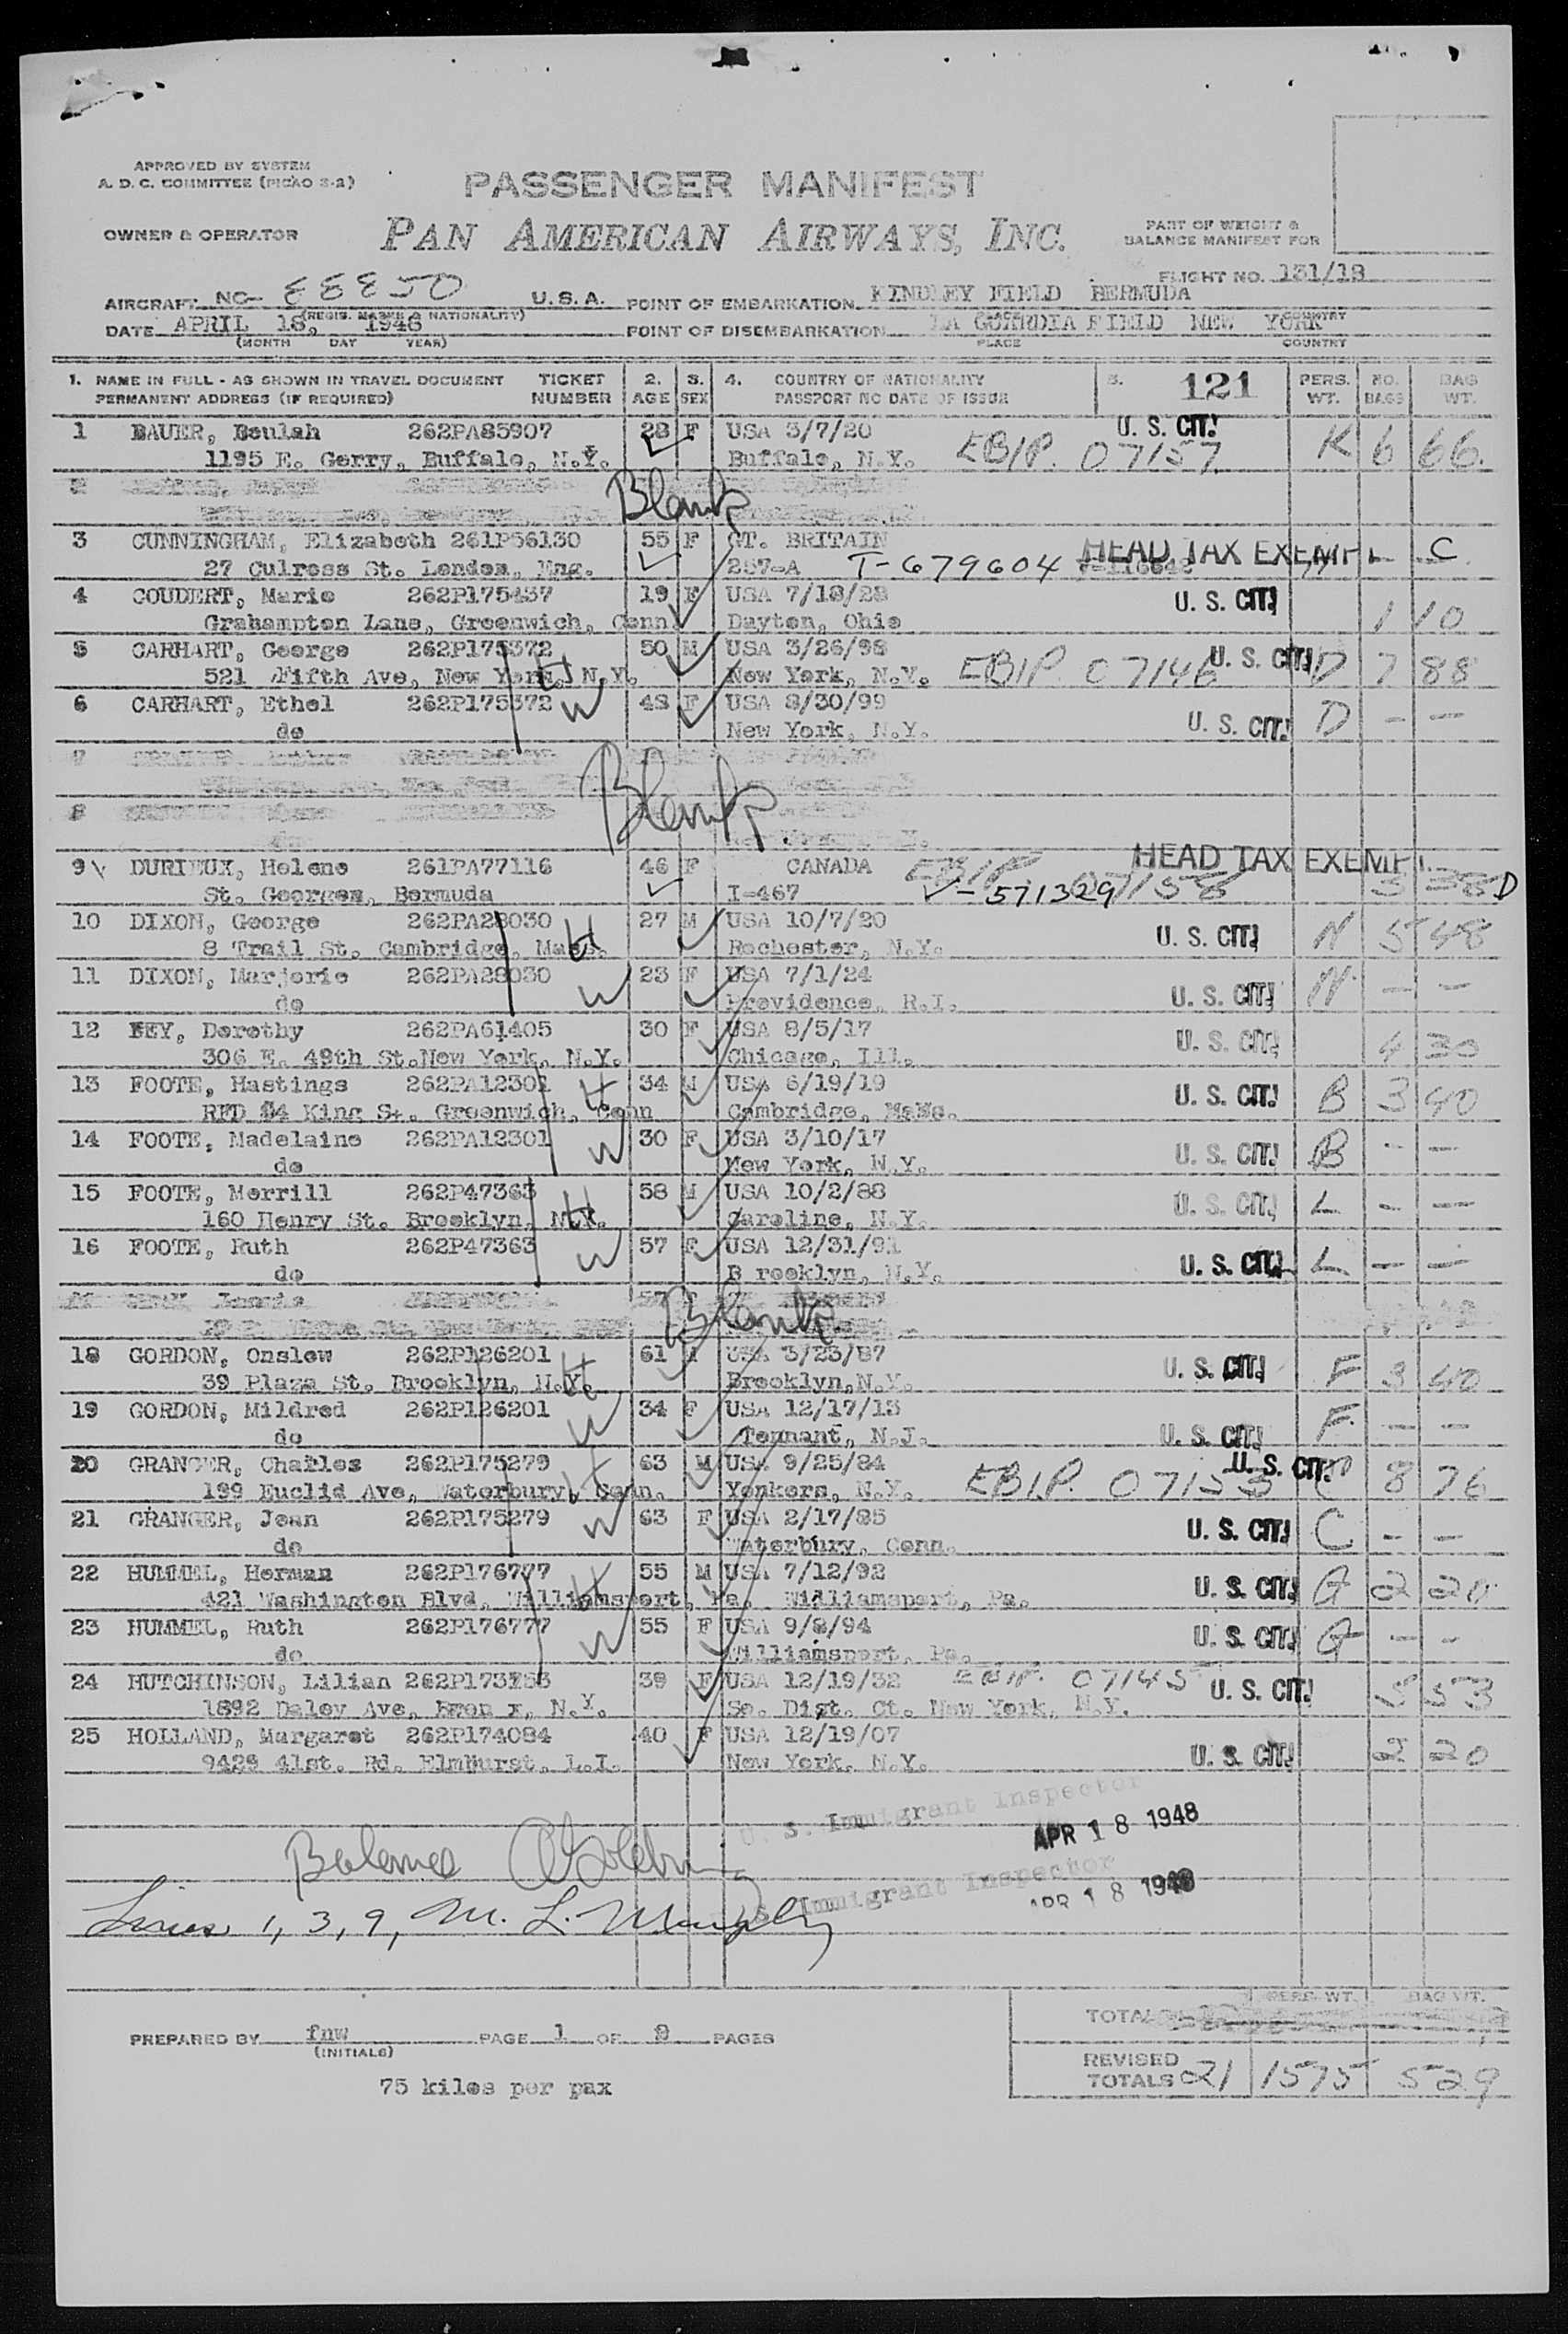 APPROVED BY SYSTEM
A. D. C. COMMITTEE (PICAO 3-2)
PASSENGER MANIFEST
OWNER & OPERATOR
PAN AMERICAN AIRWAYS, INC.
PART OF WEIGHT &
BALANCE MANIFEST FOR
FLIGHT NO. 131/18
AIRCRAFT NC U.S.A. POINT OF EMBARKATION KINDLEY FIELD BERMUDA
(REGIS. MARKS & NATIONALITY)
DATE APRIL 18, 1948 POINT OF DISEMBARKATION LA GUARDIA FIELD NEW YORK
(MONTH DAY YEAR) PLACE COUNTRY
1. NAME IN FULL - AS SHOWN IN TRAVEL DOCUMENT TICKET 2. 3. 4. COUNTRY OF NATIONALITY 5. 121 PERS. NO. BAG
PERMANENT ADDRESS (IF REQUIRED) NUMBER AGE SEX PASSPORT NO DATE OF ISSUE WT. BAGS WT.
1 BAUER, Beulah 262PA85907 28 F USA 3/7/20 U. S. CIT.
1195 E. Gerry, Buffalo, N.Y. Buffalo, N.Y. EBIP. 07157 K 6 66
2 Blank
3 CUNNINGHAM, Elizabeth 261P56130 55 F GT. BRITAIN HEAD TAX EXEMPT C
27 Culross St. London, Eng. 257-A T-679604
4 COUDERT, Marie 262P175437 19 F USA 7/18/28 U. S. CIT.
Grahampton Lane, Greenwich, Conn. Dayton, Ohio 1 10
5 CARHART, George 262P175372 50 M USA 3/26/98 U. S. CIT.
521 Fifth Ave, New York, N.Y. H New York, N.Y. EBIP 07146 D 7 88
6 CARHART, Ethel 262P175372 W 48 F USA 8/30/99
do New York, N.Y. U. S. CIT. D - -
7
Blank
8
9 DURIEUX, Helene 261PA77116 46 F CANADA EBIP 07158 HEAD TAX EXEMPT
St. Georges, Bermuda I-467 V-571329 3 38 D
10 DIXON, George 262PA28030 27 M USA 10/7/20 U. S. CIT. N 5 48
8 Trail St. Cambridge, Mass. H Rochester, N.Y.
11 DIXON, Marjorie 262PA28030 23 F USA 7/1/24
do W Providence, R.I. U. S. CIT. N - -
12 BEY, Dorothy 262PA61405 30 F USA 8/5/17 U. S. CIT.
306 E. 49th St.New York, N.Y. Chicago, Ill. 4 30
13 FOOTE, Hastings 262PA12301 H 34 M USA 6/19/19 U. S. CIT. B 3 40
RFD #4 King St. Greenwich, Conn Cambridge, Mass.
14 FOOTE, Madelaine 262PA12301 W 30 F USA 3/10/17 U. S. CIT. B - -
do New York, N.Y.
15 FOOTE, Merrill 262P47363 58 M USA 10/2/88 U. S. CIT. L - -
160 Henry St. Brooklyn, N.Y. H Caroline, N.Y.
16 FOOTE, Ruth 262P47363 W 57 F USA 12/31/91 U. S. CIT. L - -
do B rooklyn, N.Y.
Blank
18 GORDON, Onslow 262P126201 61 M USA 3/23/87 U. S. CIT. F 3 40
39 Plaza St. Brooklyn, N.Y. H Brooklyn,N.Y.
19 GORDON, Mildred 262P126201 W 34 F USA 12/17/13 F. - -
do Tennant, N.J. U. S. CIT.
20 GRANGER, Charles 262P175279 63 M USA 9/25/84 U. S. CIT.
199 Euclid Ave, Waterbury, Conn. H Yonkers, N.Y. EBIP. 07153 C 8 76
21 GRANGER, Jean 262P175279 W 63 F USA 2/17/85 U. S. CIT. C - -
do Waterbury, Conn.
22 HUMMEL, Herman 262P176777 55 M USA 7/12/92 U. S. CIT. G 2 20
421 Washington Blvd, Williamsport, Pa. H Williamsport, Pa.
23 HUMMEL, Ruth 262P176777 W 55 F USA 9/8/94 U. S. CIT. G - -
do Williamsport, Pa.
24 HUTCHINSON, Lilian 262P173753 39 F USA 12/19/32 EBIP. 07145 U. S. CIT. 5 53
1892 Daley Ave, Bron x, N.Y. So. Dist. Ct. New York, N.Y.
25 HOLLAND, Margaret 262P174084 40 F USA 12/19/07
9429 41st. Rd. Elmhurst, L.I. New York, N.Y. U. S. CIT. 2 20
U. S. Immigrant Inspector
APR 18 1948
Balance
U. S. Immigrant Inspector
APR 18 1948
Lines 1, 3, 9, M. L. Murphy
PERS. WT. BAG WT.
TOTAL
PREPARED BY fnw PAGE 1 OF 2 PAGES
(INITIALS)
REVISED
TOTALS 21 1575 529
75 kilos per pax